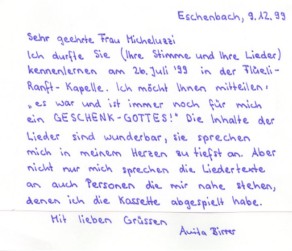 Eschenbach, 9.12.99
Sehr geehrte Frau Micheluzzi
Ich durfte Sie (Ihre Stimme und Ihre Lieder)
kennenlernen am 26. Juli '99 in der Flüeli-
Ranft-Kapelle. Ich möcht Ihnen mitteilen,
"es war und ist immer noch für mich
ein GESCHENK-GOTTES!" Die Inhalte der
Lieder sind wunderbar, sie sprechen
mich in meinem Herzen zu tiefst an. Aber
nicht nur mich sprechen die Liedertexte
an auch Personen die mir nahe stehen,
denen ich die Kassette abgespielt habe.
Mit lieben Grüssen
Anita